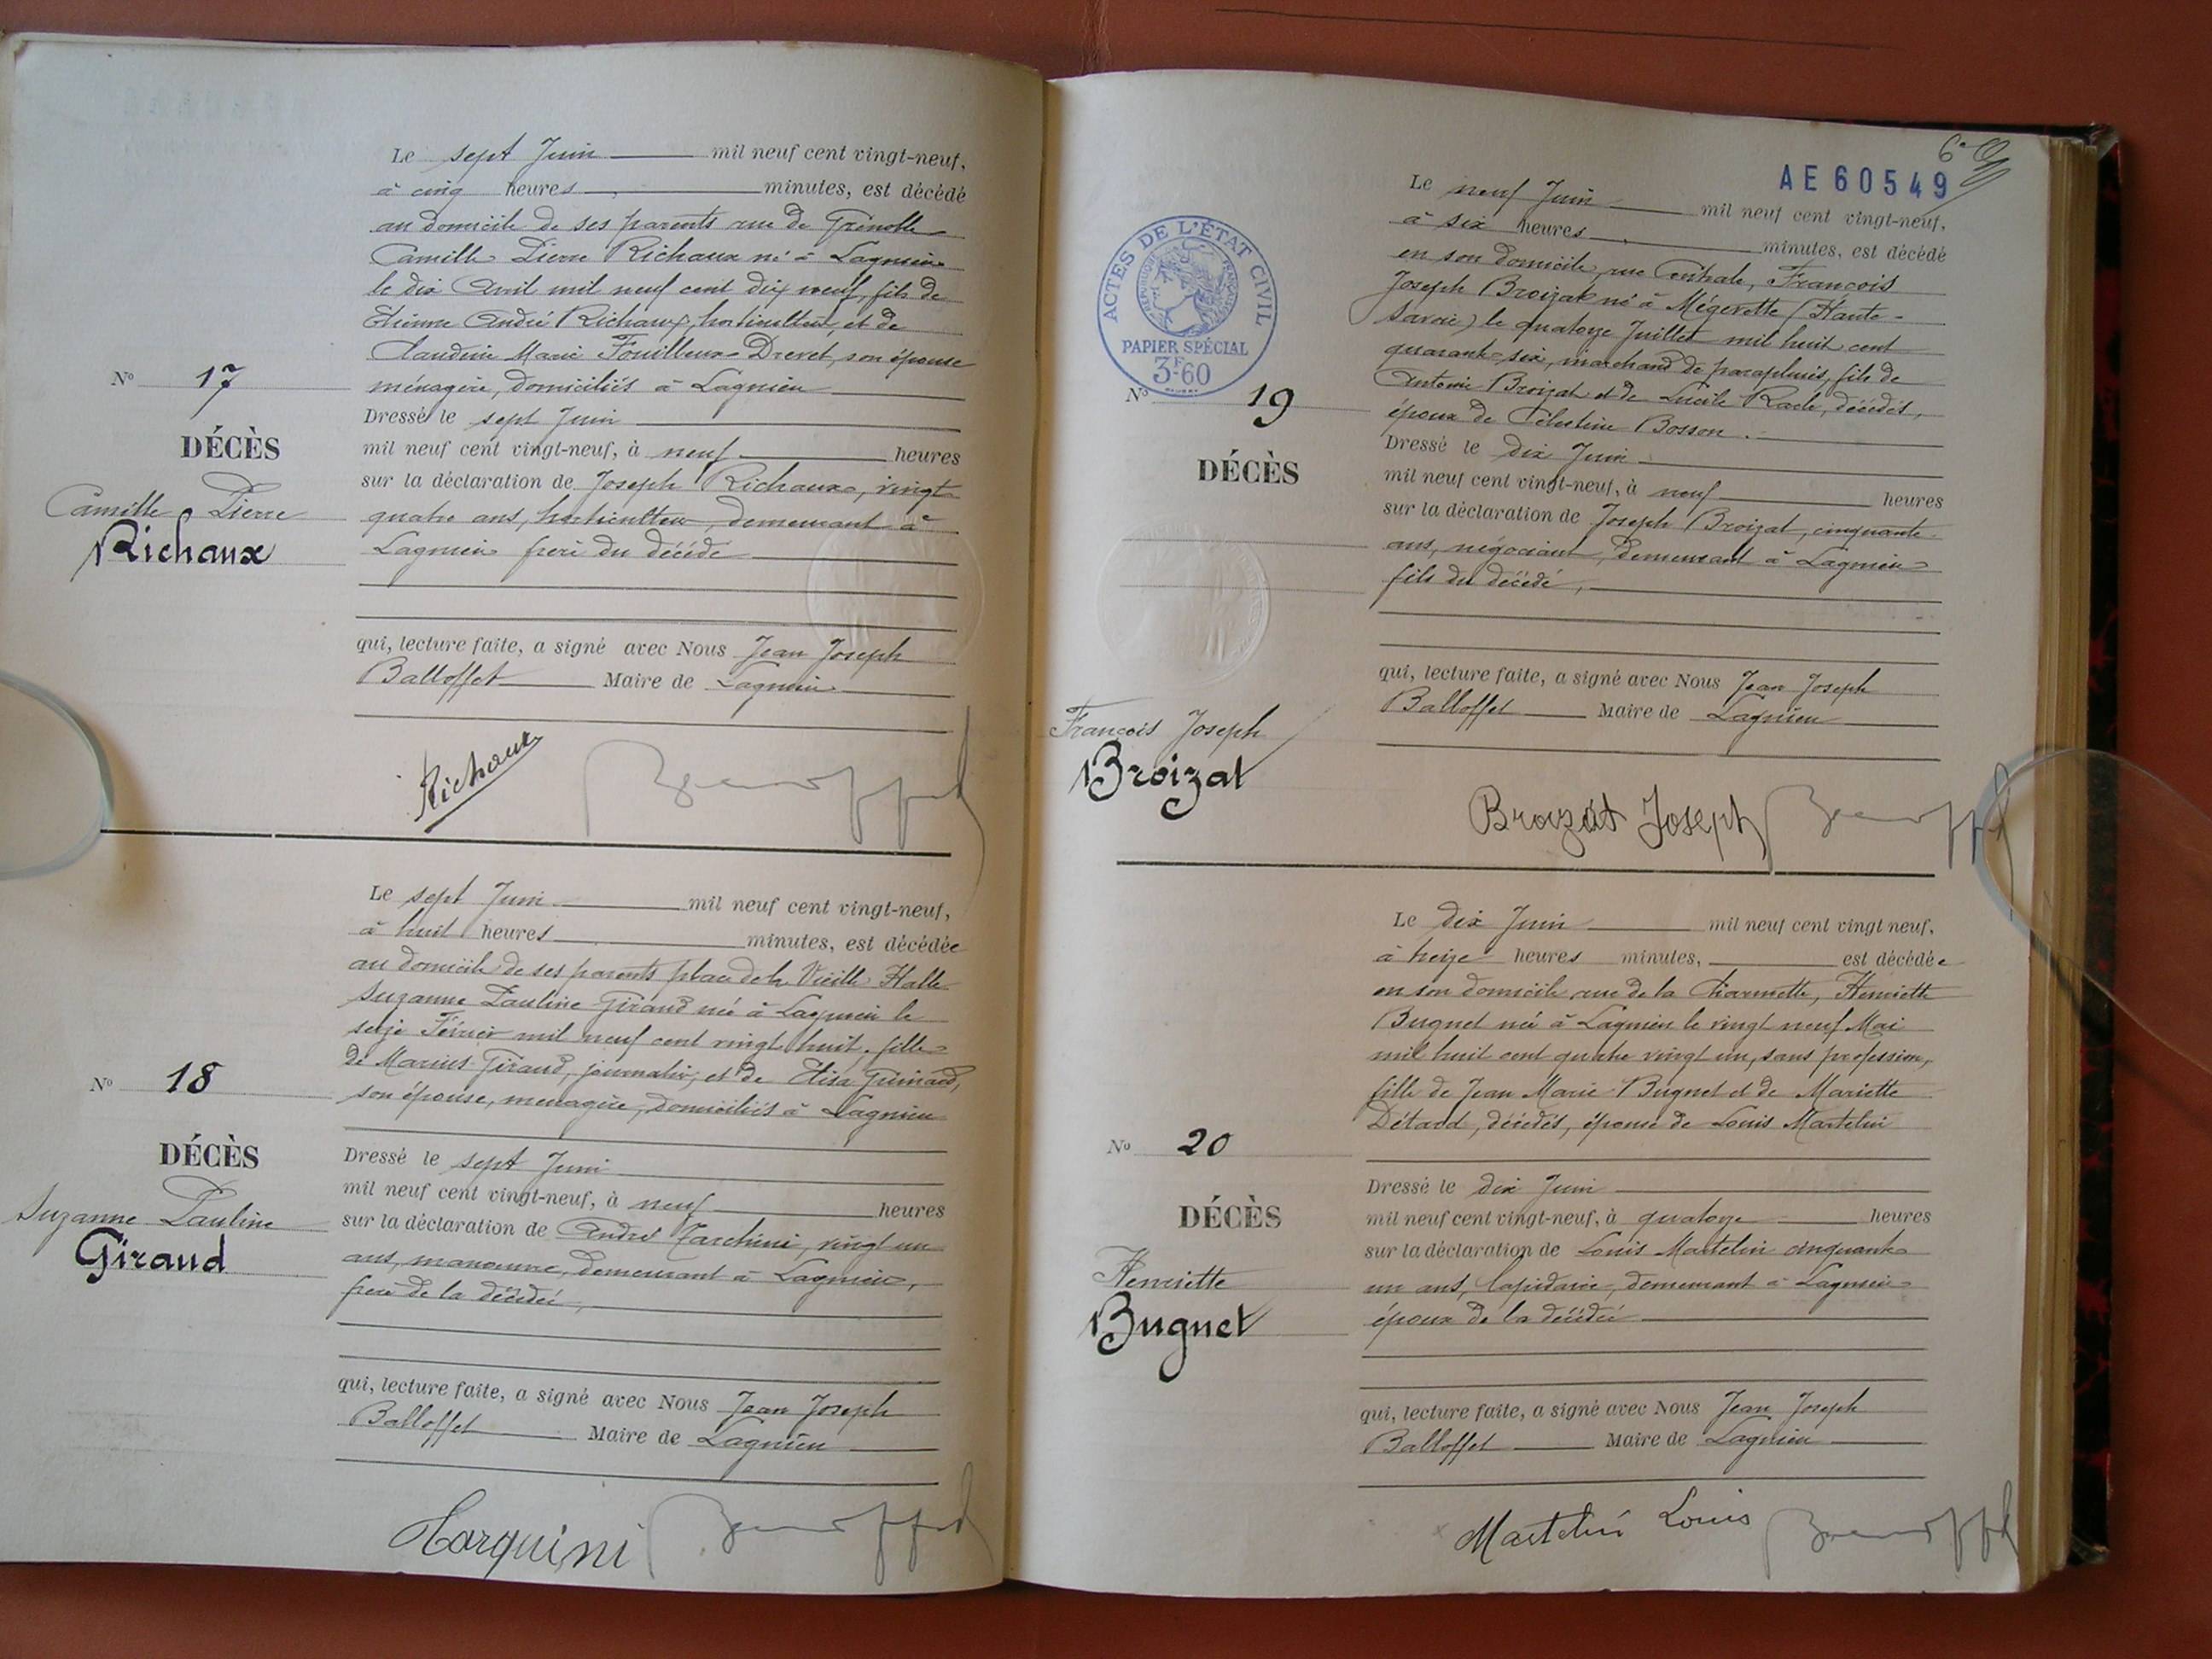 Le sept Juin mil neuf cent vingt-neuf,
à cinq heures minutes, est décédé
au domicile de ses parents rue de Grenoble
Camille Pierre Richaux né à Lagnieu
le dix Avril mil neuf cent dix neuf, fils de
Etienne André Richaux, horticulteur, et de
Claudine Marie Fouilleux Drevet, son épouse
ménagère, domiciliés à Lagnieu
Nº 17
DÉCÈS
Camille Pierre
Richaux
Dressé le sept Juin
mil neuf cent vingt-neuf, à neuf heures
sur la déclaration de Joseph Richaux, vingt
quatre ans, horticulteur, demeurant à
Lagnieu frère du décédé
qui, lecture faite, a signé avec Nous Jean Joseph
Balloffet Maire de Lagnieu
Richaux
Le sept Juin mil neuf cent vingt-neuf,
à huit heures minutes, est décédée
au domicile de ses parents place de la Vieille Halle
Suzanne Pauline Giraud née à Lagnieu le
seize Février mil neuf cent vingt huit, fille
de Marius Giraud, journalier, et de Elisa
son épouse, ménagère, domiciliés à Lagnieu
Nº 18
DÉCÈS
Suzanne Pauline
Giraud
Dressé le sept Juin
mil neuf cent vingt-neuf, à neuf heures
sur la déclaration de André vingt un
ans, manoeuvre, demeurant à Lagnieu,
frère de la décédée,
qui, lecture faite, a signé avec Nous Jean Joseph
Balloffet Maire de Lagnieu
6e
AE 60549
ACTES DE L'ÉTAT CIVIL
PAPIER SPÉCIAL
3F60
Le neuf Juin mil neuf cent vingt-neuf,
à six heures minutes, est décédé
en son domicile, rue Centrale, François
Joseph Broizat né à Mégevette (Haute-
Savoie) le quatorze Juillet mil huit cent
quarante-six, marchand de parapluies, fils de
Antoine Broizat et de Lucile décédés,
époux de Célestine Bosson.
Nº 19
DÉCÈS
François Joseph
Broizat
Dressé le dix Juin
mil neuf cent vingt-neuf, à neuf heures
sur la déclaration de Joseph Broizat, cinquante
ans, négociant, demeurant à Lagnieu
fils du décédé,
qui, lecture faite, a signé avec Nous Jean Joseph
Balloffet Maire de Lagnieu
Broizat Joseph
Le dix Juin mil neuf cent vingt neuf,
à treize heures minutes, est décédée
en son domicile rue de la Charmette, Henriette
Bugnet née à Lagnieu le vingt neuf Mai
mil huit cent quatre vingt un, sans profession,
fille de Jean Marie Bugnet et de Mariette
Détard, décédés, épouse de Louis Martelin
Nº 20
DÉCÈS
Henriette
Bugnet
Dressé le dix Juin
mil neuf cent vingt-neuf, à quatorze heures
sur la déclaration de Louis Martelin cinquante
un ans, lapidaire, demeurant à Lagnieu
époux de la décédée
qui, lecture faite, a signé avec Nous Jean Joseph
Balloffet Maire de Lagnieu
Martelin Louis